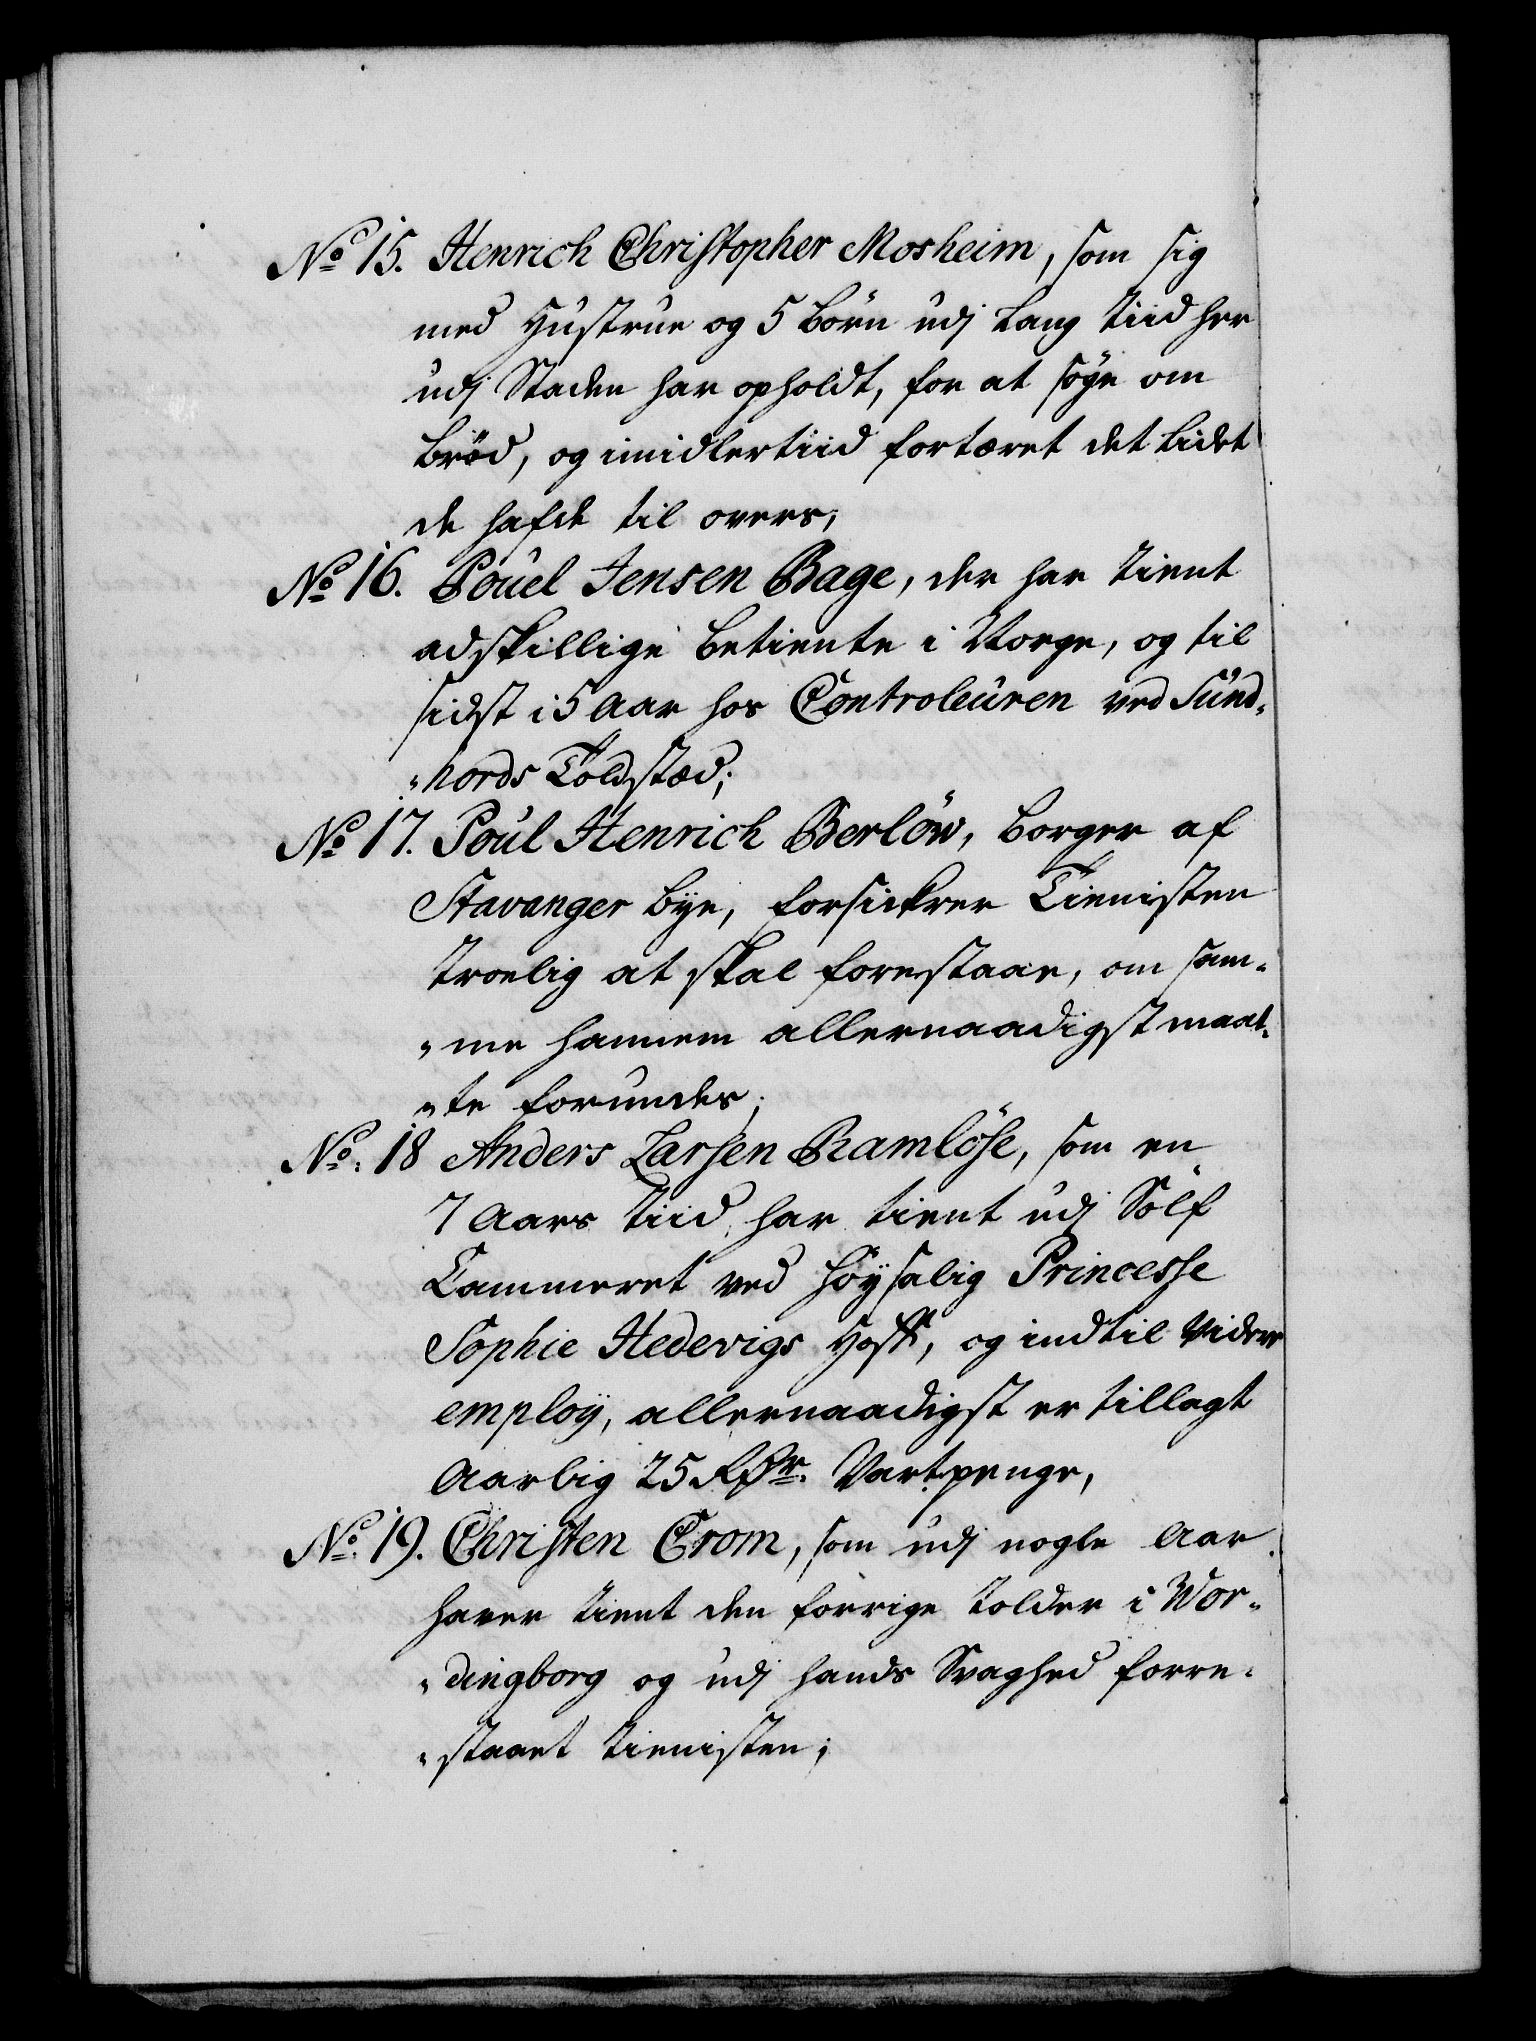 No 15. Henrich Christopher Mosheim, som sig
med Hustrue og 5 Börn udj Lang tiid her
udj Staden har opholdt, for at söge om
Bröd, og imidlertiid fortæret det Lidet
de hafde til overs;
No 16. Pouel Jensen Bage, der har tient
adskillige Betiente i Norge, og til
sidst i 5 Aar hos Controleuren ved Sund„
„hords Toldstæd;
No 17. Poul Henrich Berlöw, Borger af
Stavanger bye, forsickrer Tienisten
troelig at skal forestaae, om sam„
„me hannem allernaadigst maat„
„te forundes;
No: 18 Anders Larsen Ramlöse, som en
7 Aars tiid har tient udj Sölf
Cammeret ved höysalig Princesse
Sophie Hedevigs Hoff, og indtil Videre
employ, allernaadigst er tillagt
Aarlig 25 Rdr. Vartpenge,
No: 19. Christen Crom, som udj nogle Aar
haver tient den forrige Tolder i Wor„
„dingborg og udj hands Svaghed forre„
„staaet tienisten;